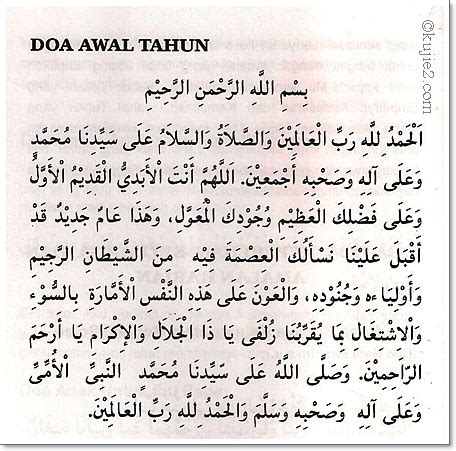 DOA AWAL TAHUN
بِسْمِ اللَّهِ الرَّحْمَنِ الرَّحِيْمِ
اَلْحَمْدُ لِلَّهِ رَبِّ الْعَالَمِيْنَ وَالصَّلَاةُ وَالسَّلَامُ عَلَى سَيِّدِنَا مُحَمَّدٍ
وَعَلَى آلِهِ وَصَحْبِهِ أَجْمَعِيْنَ. اَللَّهُمَّ أَنْتَ الْأَبَدِيُّ الْقَدِيْمُ الْأَوَّلُ
وَعَلَى فَضْلِكَ الْعَظِيْمِ وُجُوْدِكَ الْمُعَوَّلِ، وَهَذَا عَامٌ جَدِيْدٌ قَدْ
أَقْبَلَ عَلَيْنَا نَسْأَلُكَ الْعِصْمَةَ فِيْهِ مِنَ الشَّيْطَانِ الرَّجِيْمِ
وَأَوْلِيَاءِهِ وَجُنُوْدِهِ، وَالْعَوْنَ عَلَى هَذِهِ النَّفْسِ الْأَمَّارَةِ بِالسُّوْءِ
وَالْاِشْتِغَالِ بِمَا يُقَرِّبُنَا زُلْفَى يَا ذَا الْجَلَالِ وَالْإِكْرَامِ يَا أَرْحَمَ
الرَّاحِمِيْنَ. وَصَلَّى اللَّهُ عَلَى سَيِّدِنَا مُحَمَّدٍ النَّبِيِّ الْأُمِّيِّ
وَعَلَى آلِهِ وَصَحْبِهِ وَسَلَّمَ وَالْحَمْدُ لِلَّهِ رَبِّ الْعَالَمِيْنَ.
©kujie2.com